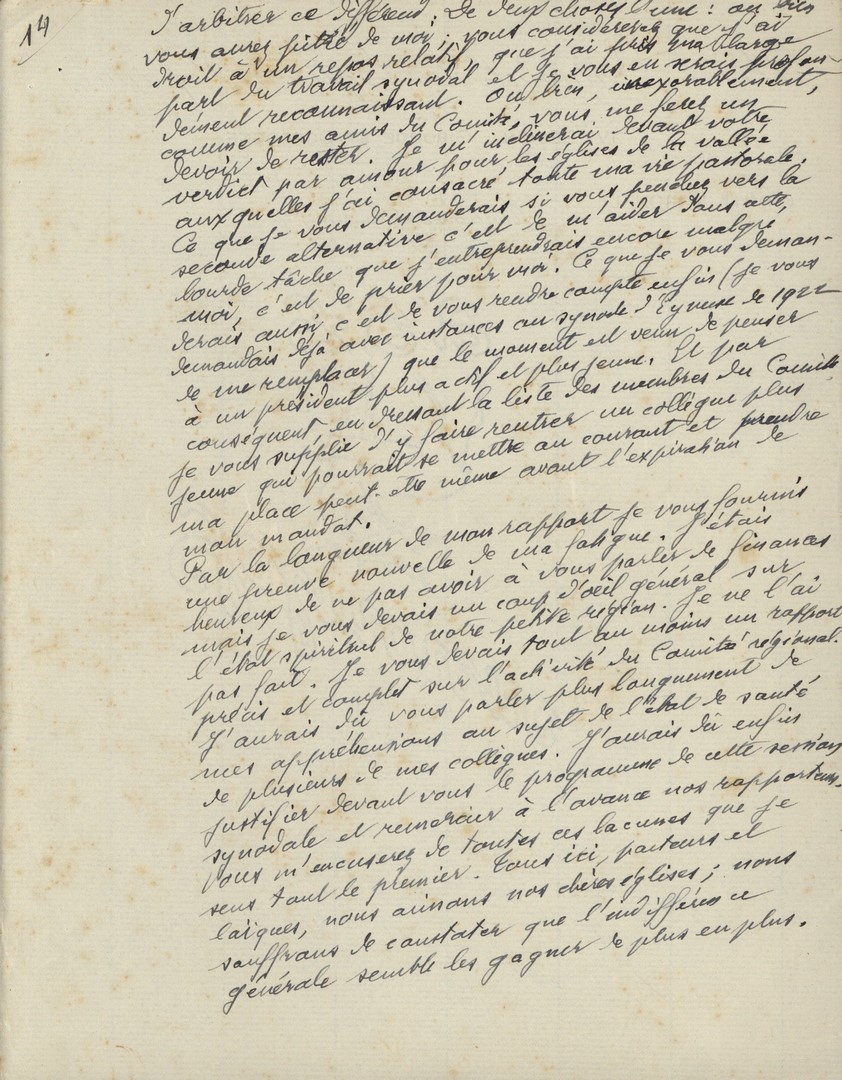 14
d'arbitrer ce différend. De deux choses l'une : ou bien
vous aurez pitié de moi ; vous considérerez que j'ai
droit à un repos relatif, que j'ai fait ma large
part du travail synodal et je vous en serais profon-
dément reconnaissant. Ou bien, inexorablement,
comme mes amis du Comité, vous me ferez un
devoir de rester. Je m'inclinerai devant votre
verdict par amour pour les églises de la vallée
auxquelles j'ai consacré toute ma vie pastorale.
Ce que je vous demanderais si vous penchez vers la
seconde alternative c'est de m'aider dans cette
lourde tâche que j'entreprendrais encore malgré
moi, c'est de prier pour moi. Ce que je vous deman-
derais aussi, c'est de vous rendre compte enfin (je vous
demandais déjà avec instances au synode d'Eynesse de 1922
de me remplacer) que le moment est venu de penser
à un président plus actif et plus jeune. Et par
conséquent, en dressant la liste des membres du Comité
je vous supplie d'y faire rentrer un collègue plus
jeune qui pourrait se mettre au courant et prendre
ma place peut-etre même avant l'expiration de
mon mandat.
Par la longueur de mon rapport je vous fournis
une preuve nouvelle de ma fatigue. J'étais
heureux de ne pas avoir à vous parler de finances
mais je vous devais un coup d'oeil général sur
l'état spirituel de notre petite région. Je ne l'ai
pas fait. Je vous devais tout au moins un rapport
précis et complet sur l'activité du Comité régional.
J'aurais dû vous parler plus longuement de
mes appréhensions au sujet de l'état de santé
de plusieurs de mes collègues. J'aurais dû enfin
justifier devant vous le programme de cette session
synodale et remercier à l'avance nos rapporteurs.
Vous m'excuserez de toutes ces lacunes que je
sens tout le premier. Tous ici, pasteurs et
laïques, nous aimons nos chères églises ; nous
souffrons de constater que l'indifférence
générale semble les gagner de plus en plus.